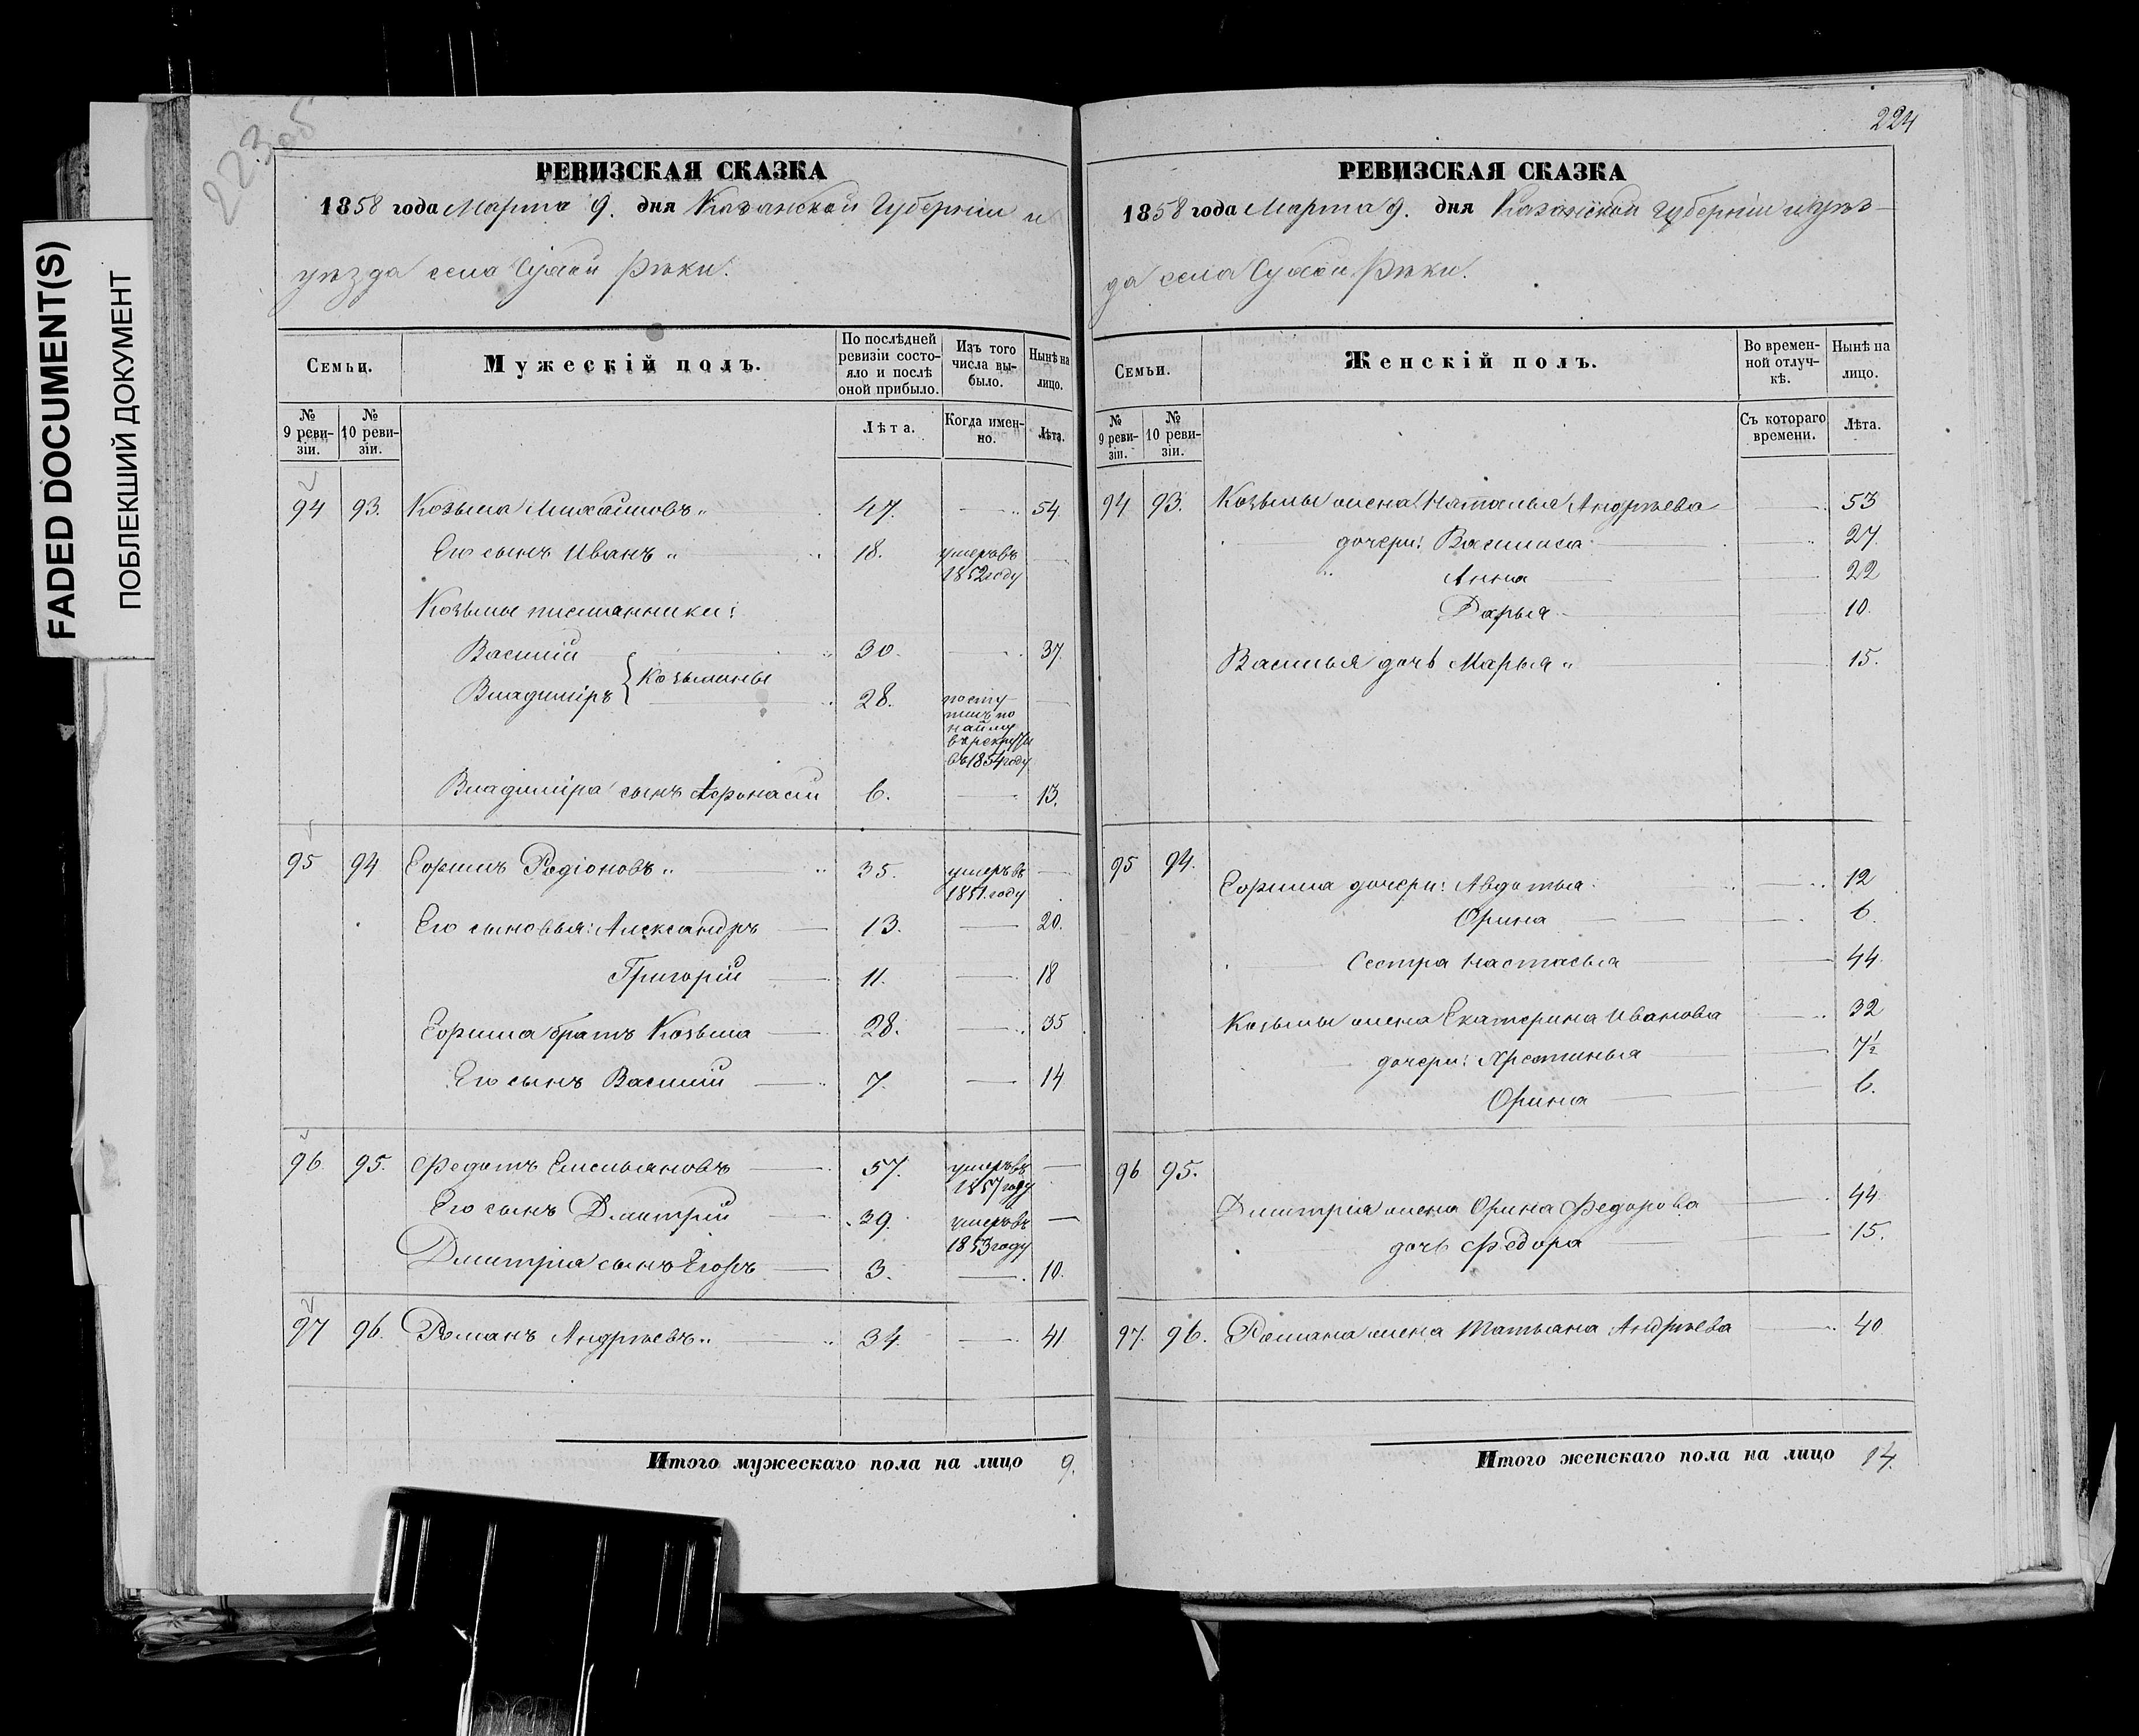 FADED DOCUMENT(S)
ПОБЛЕКШИЙ ДОКУМЕНТ
223об
РЕВИЗСКАЯ СКАЗКА
1858 года Марта 9. дня Казанской Губерніи и
уѣзда села Рѣки.
Семьи.
Мужескій полъ.
По послѣдней ревизіи состояло и послѣ оной прибыло.
Изъ того числа выбыло.
Нынѣ на лицо.
№ 9 ревизіи.
№ 10 ревизіи.
Лѣта.
Когда именно.
Лѣта.
94 93. Козьма Михайловъ 47. 54.
Его сынъ Иванъ 18. умеръ въ 1852 году
Козьмы племянники:
Василій 30. 37.
Козьмины
Владиміръ 28. поступилъ по найму въ рекруты въ 1854 году
Владиміра сынъ Афонасій 6. 13.
95 94 Ефимъ Родіоновъ 35. умеръ въ 1851. году
Его сыновья: Александръ 13. 20.
Григорій 11. 18
Ефима братъ Козьма 28. 35
Его сынъ Василій 7. 14
96. 95. Федотъ Емельяновъ 57. умеръ въ 1857 году
Его сынъ Дмитрій 39. умеръ въ 1853 году
Дмитрія сынъ Егоръ 3. 10.
97 96. Романъ Андреевъ 34. 41
Итого мужескаго пола на лицо 9.
224
РЕВИЗСКАЯ СКАЗКА
1858 года Марта 9. дня Казанской Губерніи и уѣз-
да села Рѣки.
Семьи.
Женскій полъ.
Во временной отлучкѣ.
Нынѣ на лицо.
№ 9 ревизіи.
№ 10 ревизіи.
Съ котораго времени.
Лѣта.
94 93. Козьмы жена Наталья Андреева 53
дочери: Василиса 27.
Анна 22
Дарья 10.
Василья дочь Марья 15.
95 94.
Ефима дочери: Авдотья 12
Орина 6.
Сестра Настасья 44.
Козьмы жена Екатерина Иванова 32
дочери: Хрестинья 7½
Орина 6.
96 95.
Дмитрія жена Орина Федорова 44
дочь Федора 15.
97. 96. Романа жена Татьяна Андреева 40
Итого женскаго пола на лицо 14.